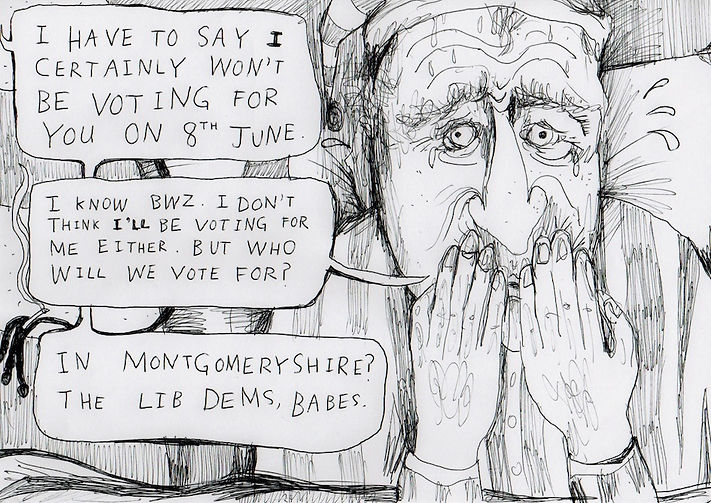 I HAVE TO SAY I
CERTAINLY WON'T
BE VOTING FOR
YOU ON 8TH JUNE.
I KNOW BWZ. I DON'T
THINK I'LL BE VOTING FOR
ME EITHER. BUT WHO
WILL WE VOTE FOR?
IN MONTGOMERYSHIRE?
THE LIB DEMS, BABES.